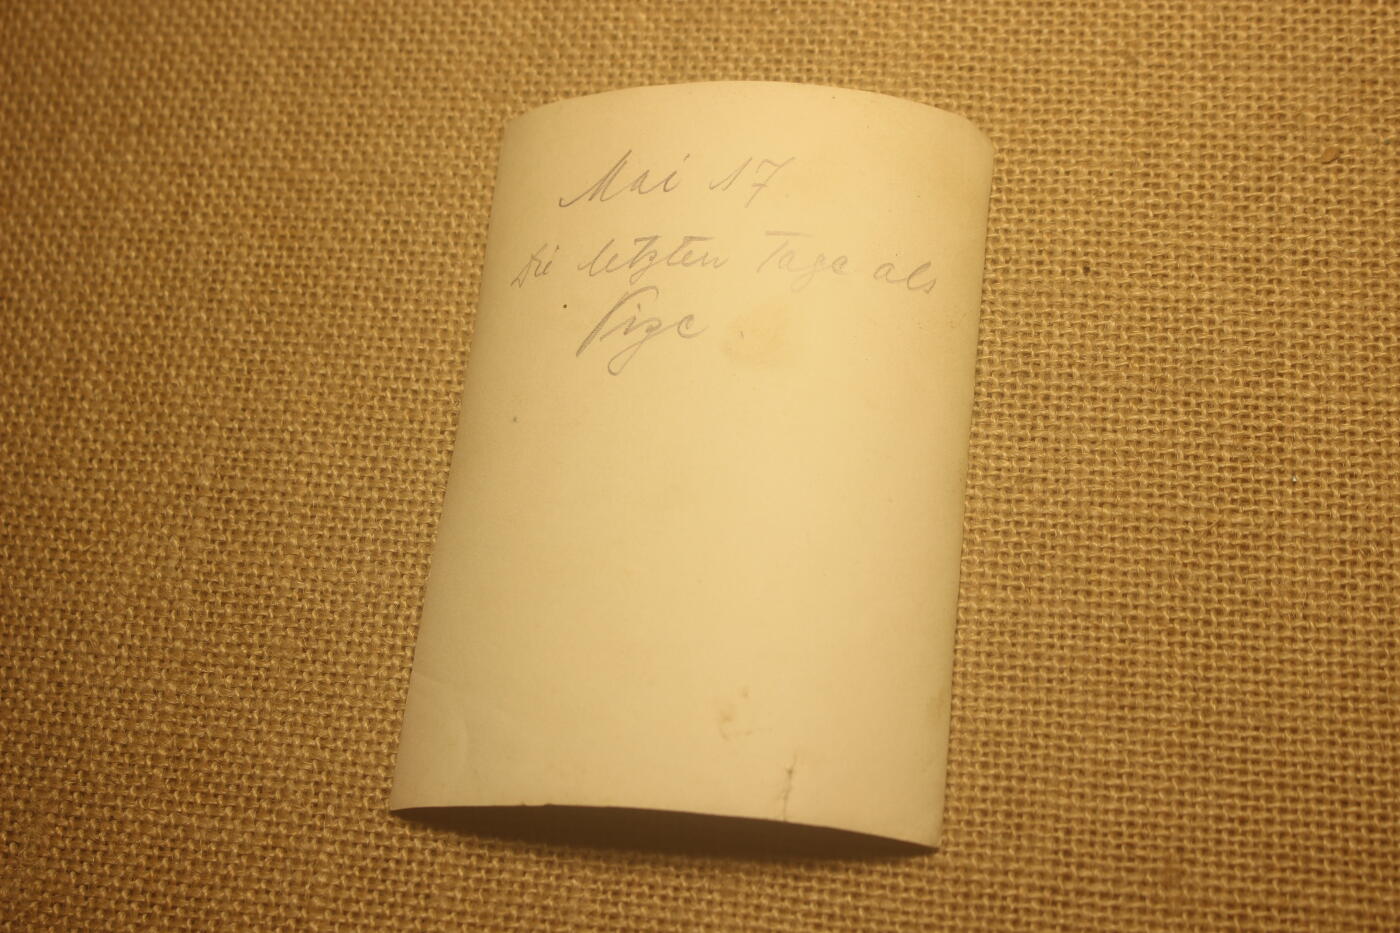 Mai 17
Die letzten Tage als
Vize